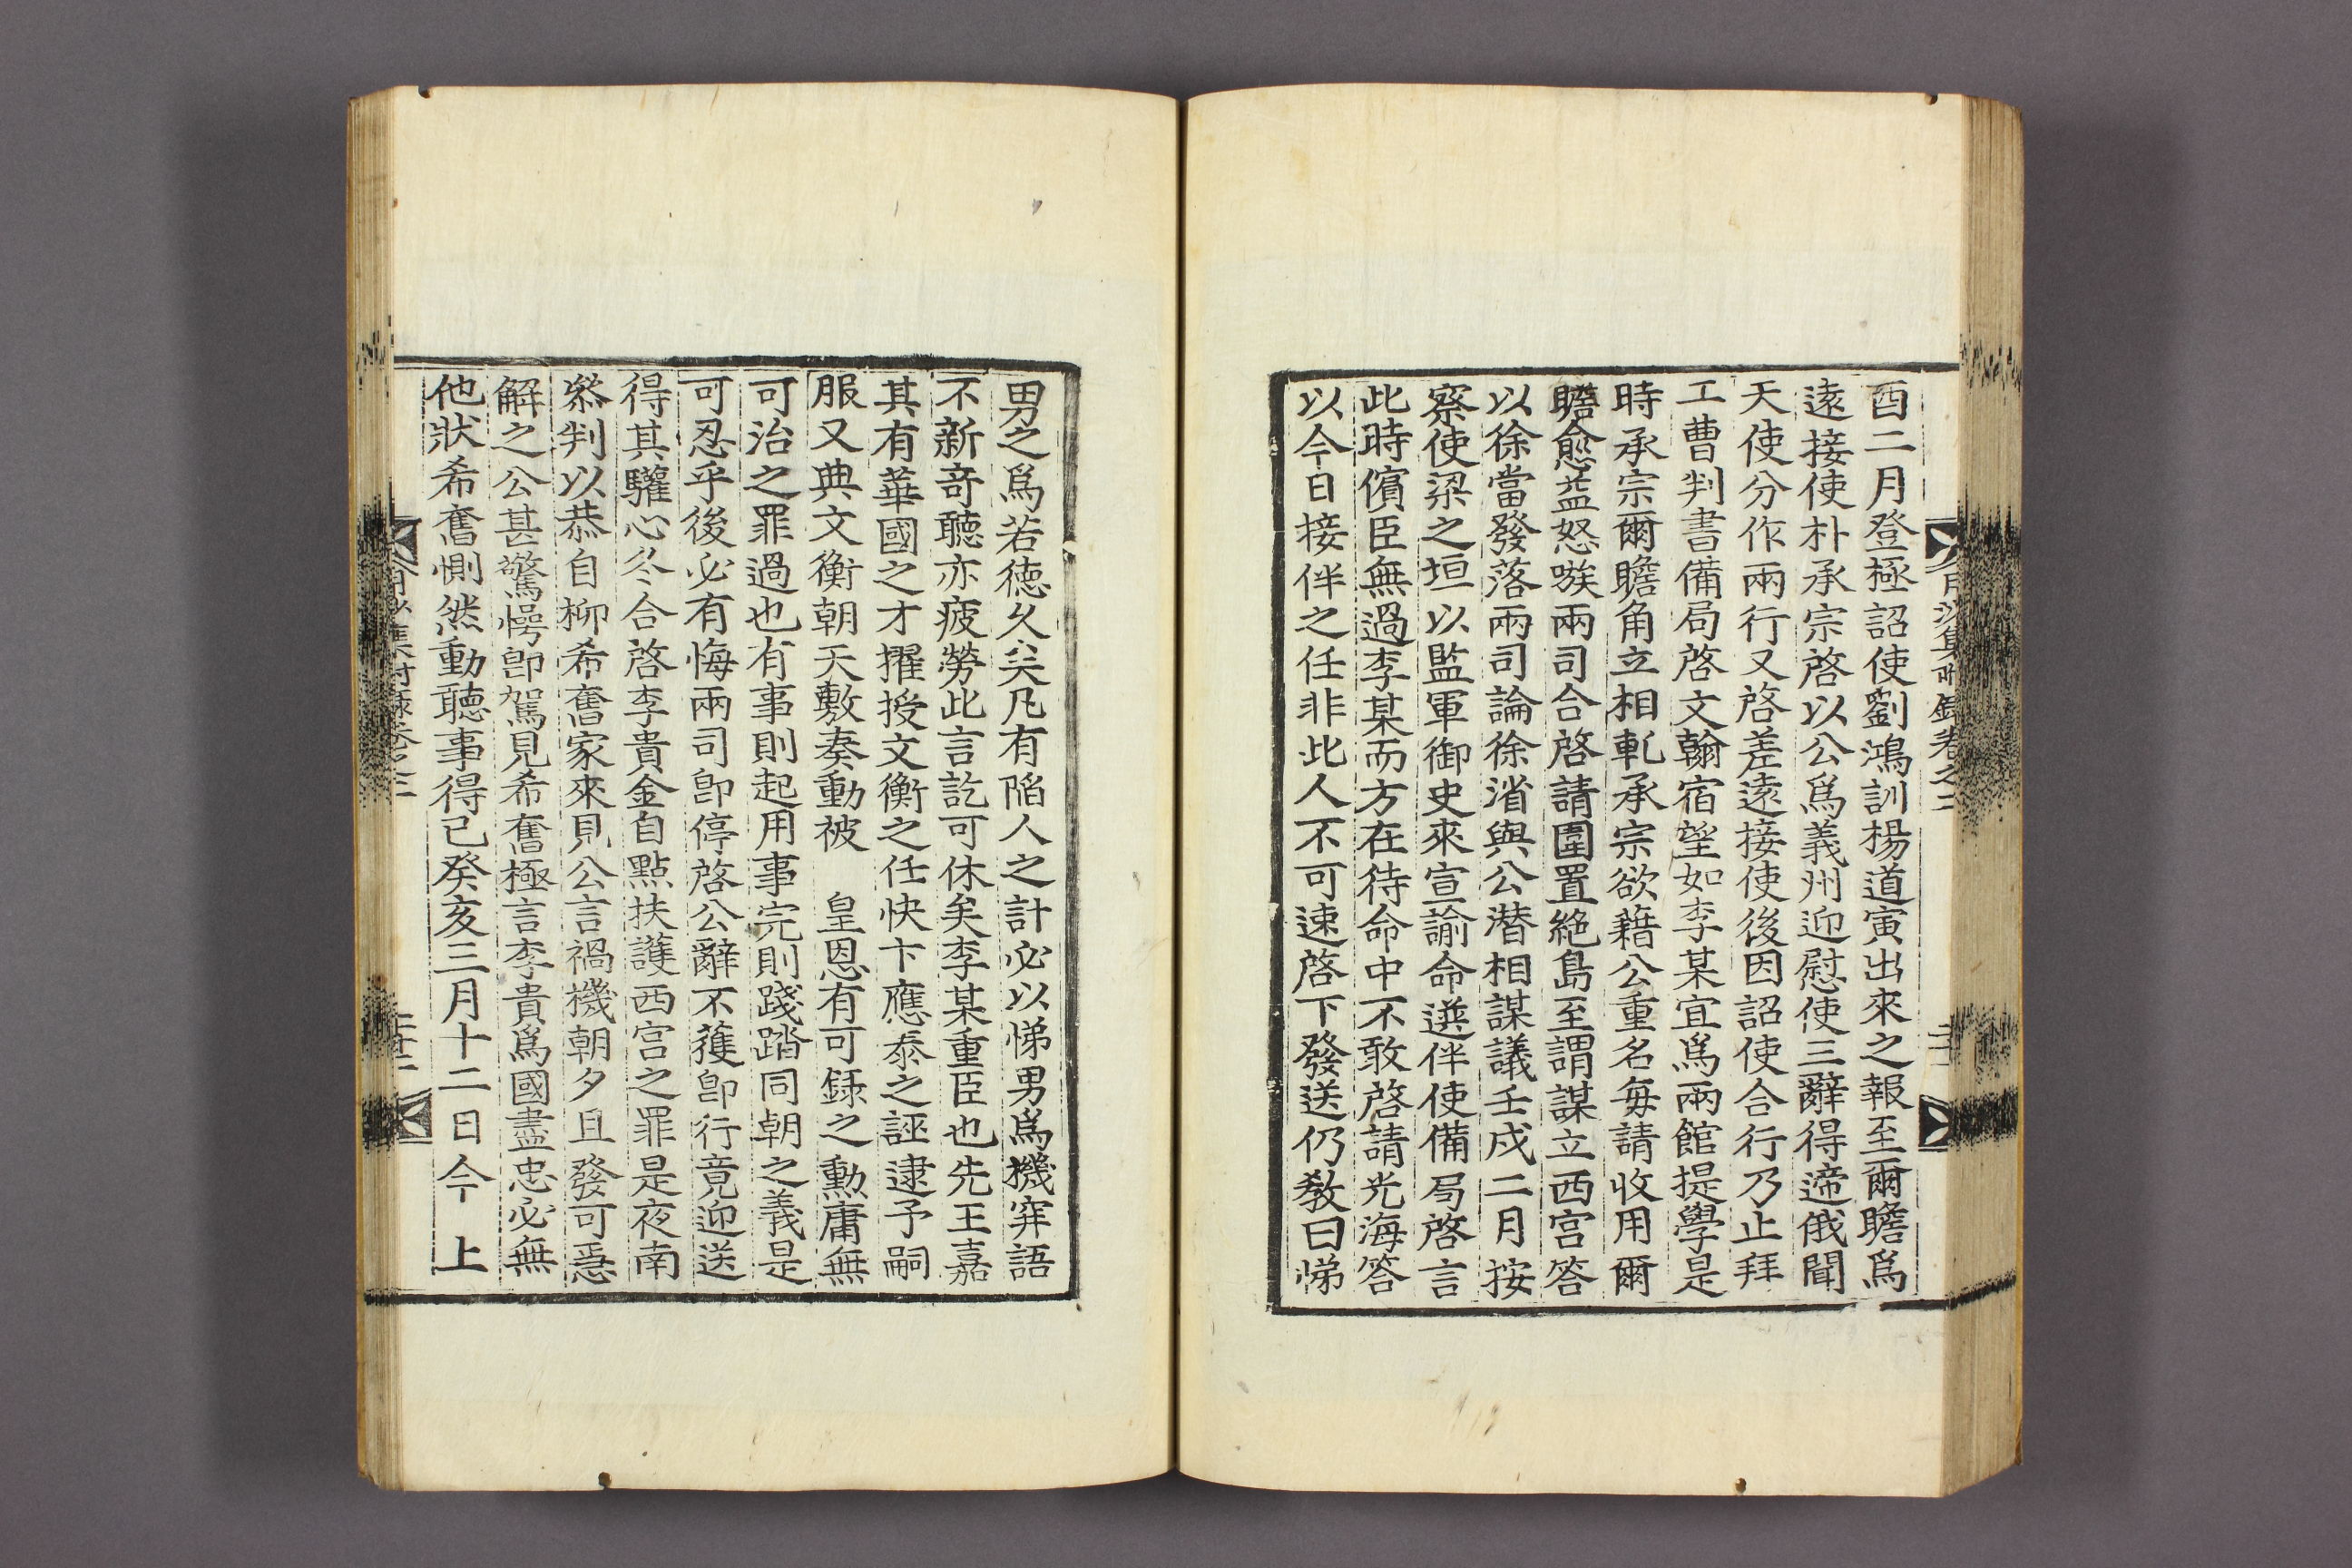 月沙集附錄卷之二
酉二月登極詔使劉鴻訓楊道寅出來之報至爾瞻爲
遠接使朴承宗啓以公爲義州迎慰使三辭得遞俄聞
天使分作兩行又啓差遠接使後因詔使合行乃止拜
工曹判書備局啓文翰宿望如李某宜爲兩館提學是
時承宗爾瞻角立相軋承宗欲藉公重名每請收用爾
瞻愈益怒嗾兩司合啓請圍置絶島至謂謀立西宮答
以徐當發落兩司論徐渻與公潜相謀議壬戌二月按
察使梁之垣以監軍御史來宣諭命遴伴使備局啓言
此時儐臣無過李某而方在待命中不敢啓請光海答
以今日接伴之任非此人不可速啓下發送仍教曰悌
男之爲若德久矣凡有陷人之計必以悌男爲機穽語
不新奇聽亦疲勞此言訖可休矣李某重臣也先王嘉
其有華國之才擢授文衡之任快卞應泰之誣逮予嗣
服又典文衡朝天敷奏動被　皇恩有可録之勳庸無
可治之罪過也有事則起用事完則踐踏同朝之義是
可忍乎後必有悔兩司卽停啓公辭不獲卽行竟迎送
得其驩心冬合啓李貴金自點扶護西宮之罪是夜南
叅判以恭自柳希奮家來見公言禍機朝夕且發可亟
解之公甚驚愕卽駕見希奮極言李貴爲國盡忠必無
他狀希奮惻然動聽事得已癸亥三月十二日今　上